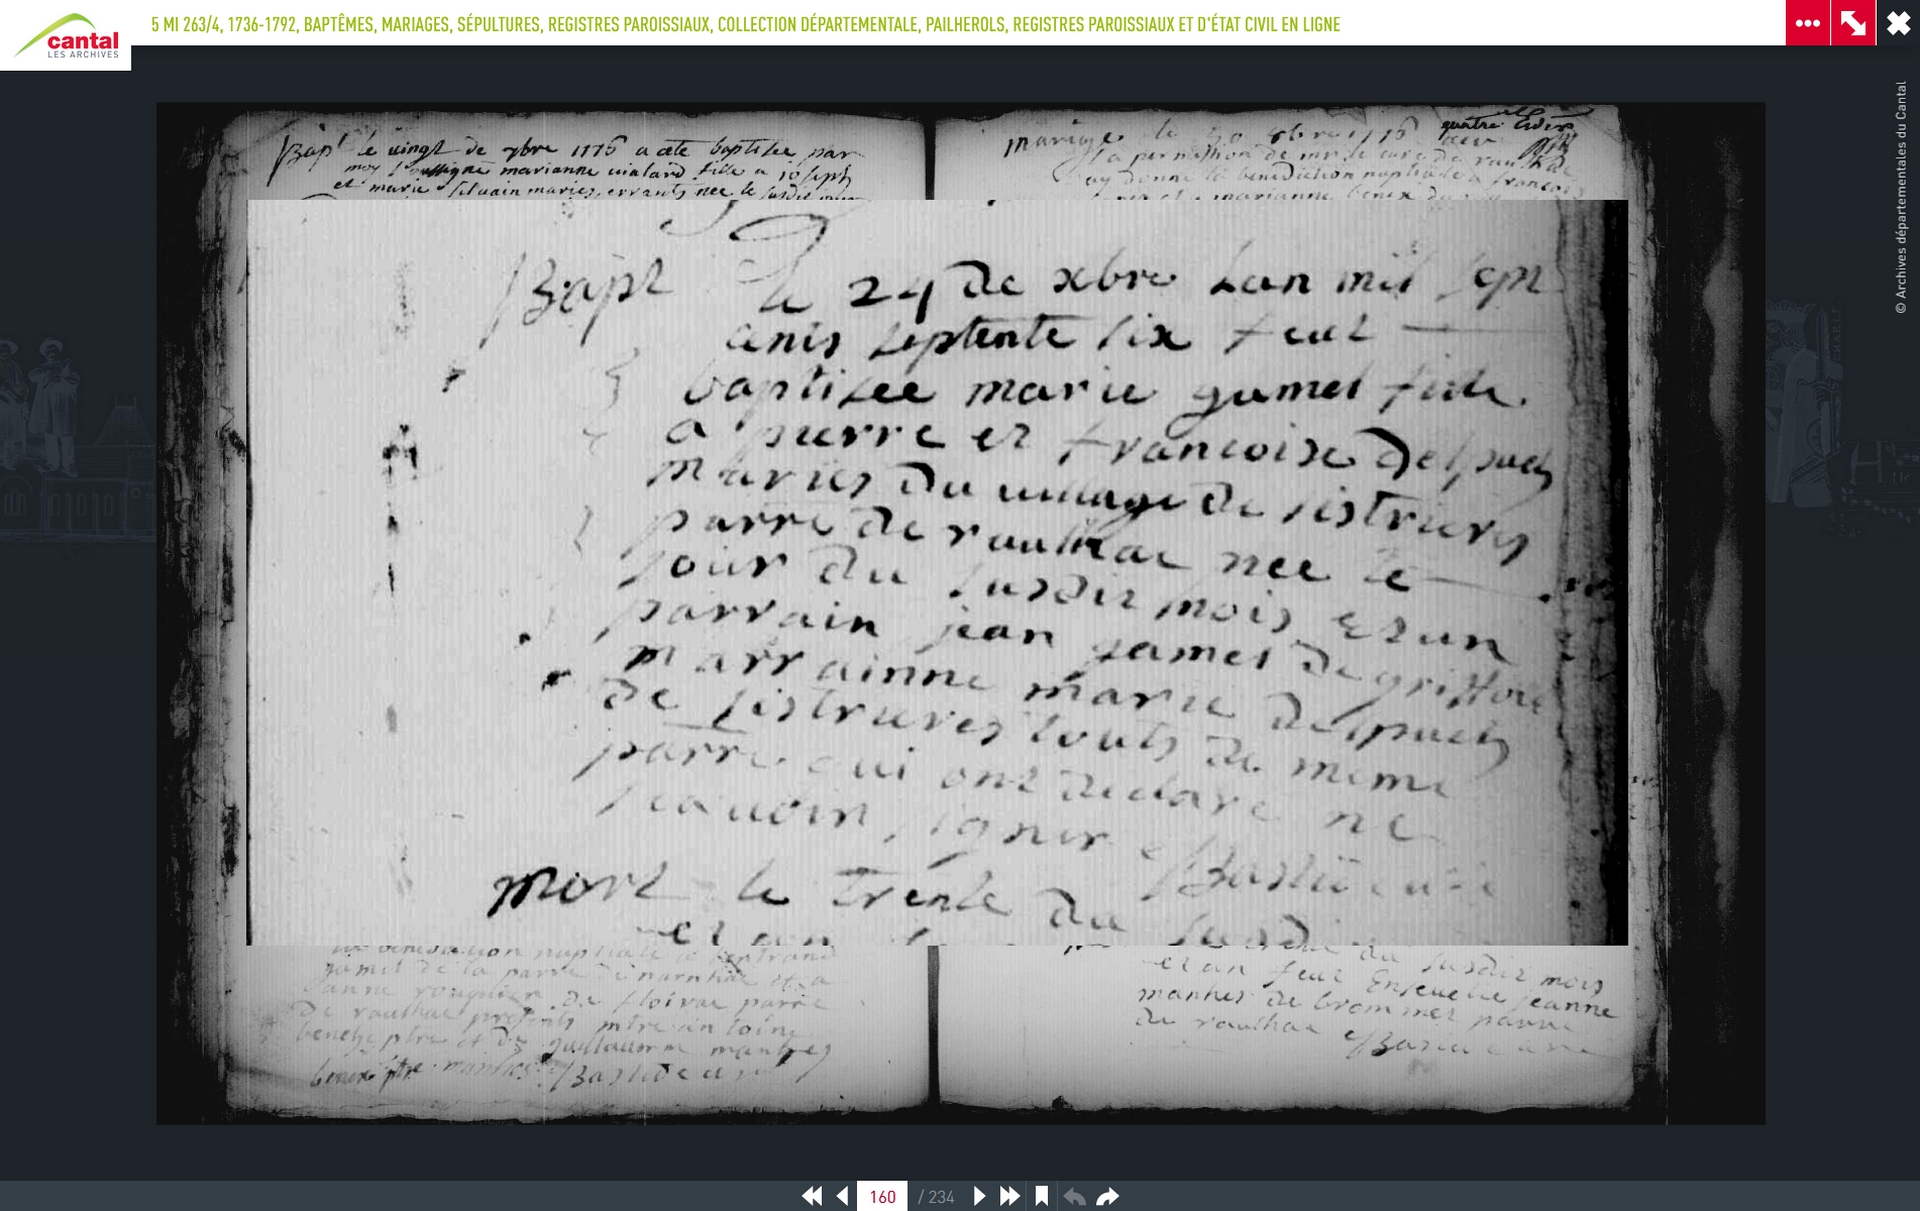 cantal
LES ARCHIVES
5 MI 263/4, 1736-1792, BAPTÊMES, MARIAGES, SÉPULTURES, REGISTRES PAROISSIAUX, COLLECTION DÉPARTEMENTALE, PAILHEROLS, REGISTRES PAROISSIAUX ET D'ÉTAT CIVIL EN LIGNE
© Archives départementales du Cantal
Bapt le vingt de 7bre 1776 a ete baptisée par
moy soussigné marianne vialard fille a joseph
et marie maries, errants nee le susdit
mariage le 30 8bre 1776
la permission de mr le curé de raulhac
ay donné la benediction nuptiale a francois
marianne benex du
Bapt le 24 de xbre Lan mil sept
cents septente six feut
baptisée marie gamel fille
a pierre et francoise delpuech
maries du village de listrieres
parre de raulhac nee le
jour du susdit mois et an
parrain jean gamel de griffoul
marrainne marie delpuech
de listrieres touts de meme
parre qui ont declare ne
scavoir signer Bastide curé
mort le trente du susdit mois
et an feut Ensevelie jeanne
manhes de brommes parre
de raulhac Bastide curé
la benediction nuptiale a bertrand
gamel de la parre de narnhac et a
janne de floirac parre
de raulhac presents mtre antoine
benech ptre et de guillaumme manhes
benex ptre manhes Bastide curé
160 / 234